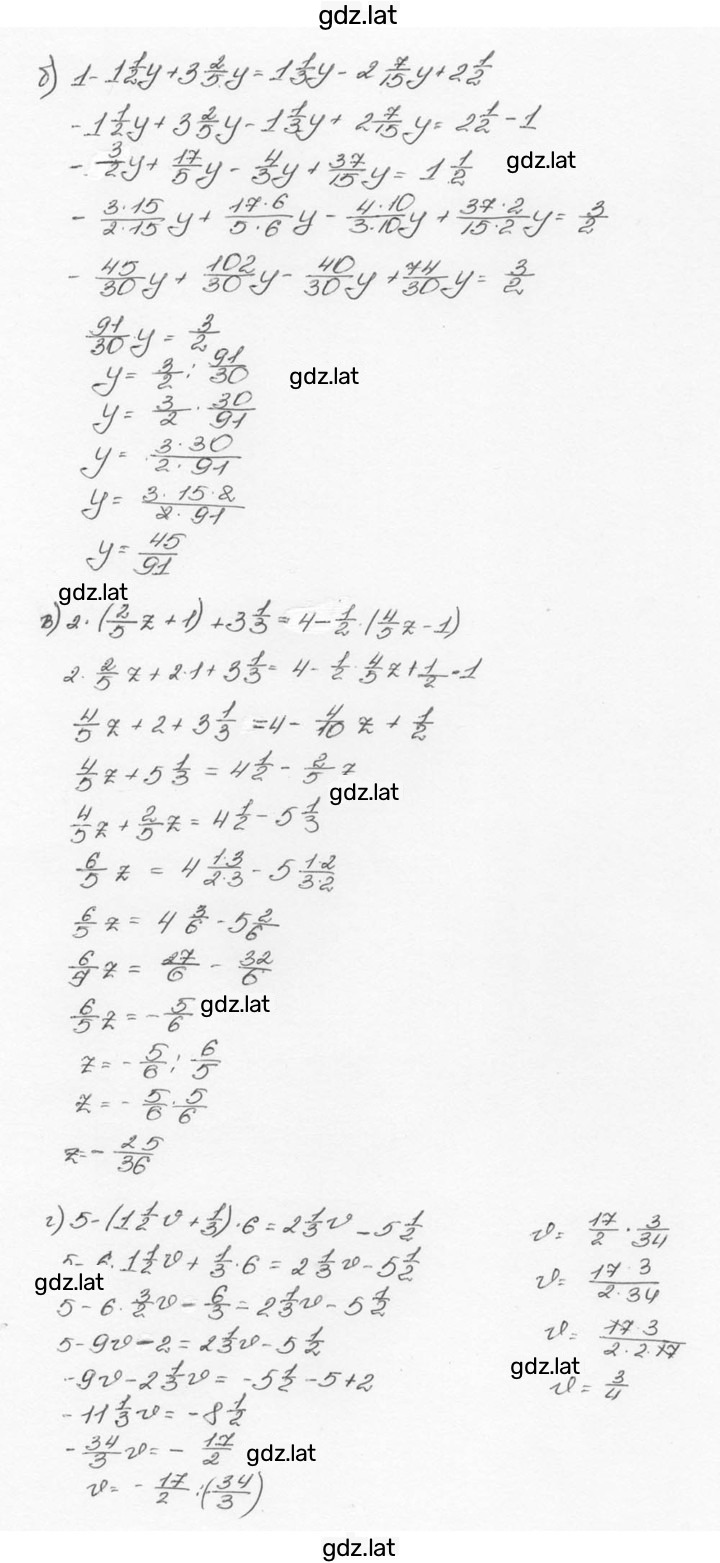 gdz.lat
б) 1 - 1 1/2 y + 3 2/5 y = 1 1/3 y - 2 7/15 y + 2 1/2
- 1 1/2 y + 3 2/5 y - 1 1/3 y + 2 7/15 y = 2 1/2 - 1
- 3/2 y + 17/5 y - 4/3 y + 37/15 y = 1 1/2 gdz.lat
- 3·15/2·15 y + 17·6/5·6 y - 4·10/3·10 y + 37·2/15·2 y = 3/2
- 45/30 y + 102/30 y - 40/30 y + 74/30 y = 3/2
91/30 y = 3/2
y = 3/2 : 91/30 gdz.lat
y = 3/2 · 30/91
y = 3·30/2·91
y = 3·15·2/2·91
y = 45/91
gdz.lat
в) 2·(2/5 z + 1) + 3 1/3 = 4 - 1/2·(4/5 z - 1)
2·2/5 z + 2·1 + 3 1/3 = 4 - 1/2·4/5 z + 1/2·1
4/5 z + 2 + 3 1/3 = 4 - 4/10 z + 1/2
4/5 z + 5 1/3 = 4 1/2 - 2/5 z
gdz.lat
4/5 z + 2/5 z = 4 1/2 - 5 1/3
6/5 z = 4 1·3/2·3 - 5 1·2/3·2
6/5 z = 4 3/6 - 5 2/6
6/5 z = 27/6 - 32/6
6/5 z = - 5/6 gdz.lat
z = - 5/6 : 6/5
z = - 5/6 · 5/6
z = - 25/36
г) 5 - (1 1/2 v + 1/3)·6 = 2 1/3 v - 5 1/2
5 - 6·1 1/2 v + 1/3·6 = 2 1/3 v - 5 1/2
gdz.lat
5 - 6·3/2 v - 6/3 = 2 1/3 v - 5 1/2
5 - 9v - 2 = 2 1/3 v - 5 1/2
- 9v - 2 1/3 v = - 5 1/2 - 5 + 2
- 11 1/3 v = - 8 1/2
- 34/3 v = - 17/2 gdz.lat
v = - 17/2 : (- 34/3)
v = 17/2 · 3/34
v = 17·3/2·34
v = 17·3/2·2·17
gdz.lat
v = 3/4
gdz.lat